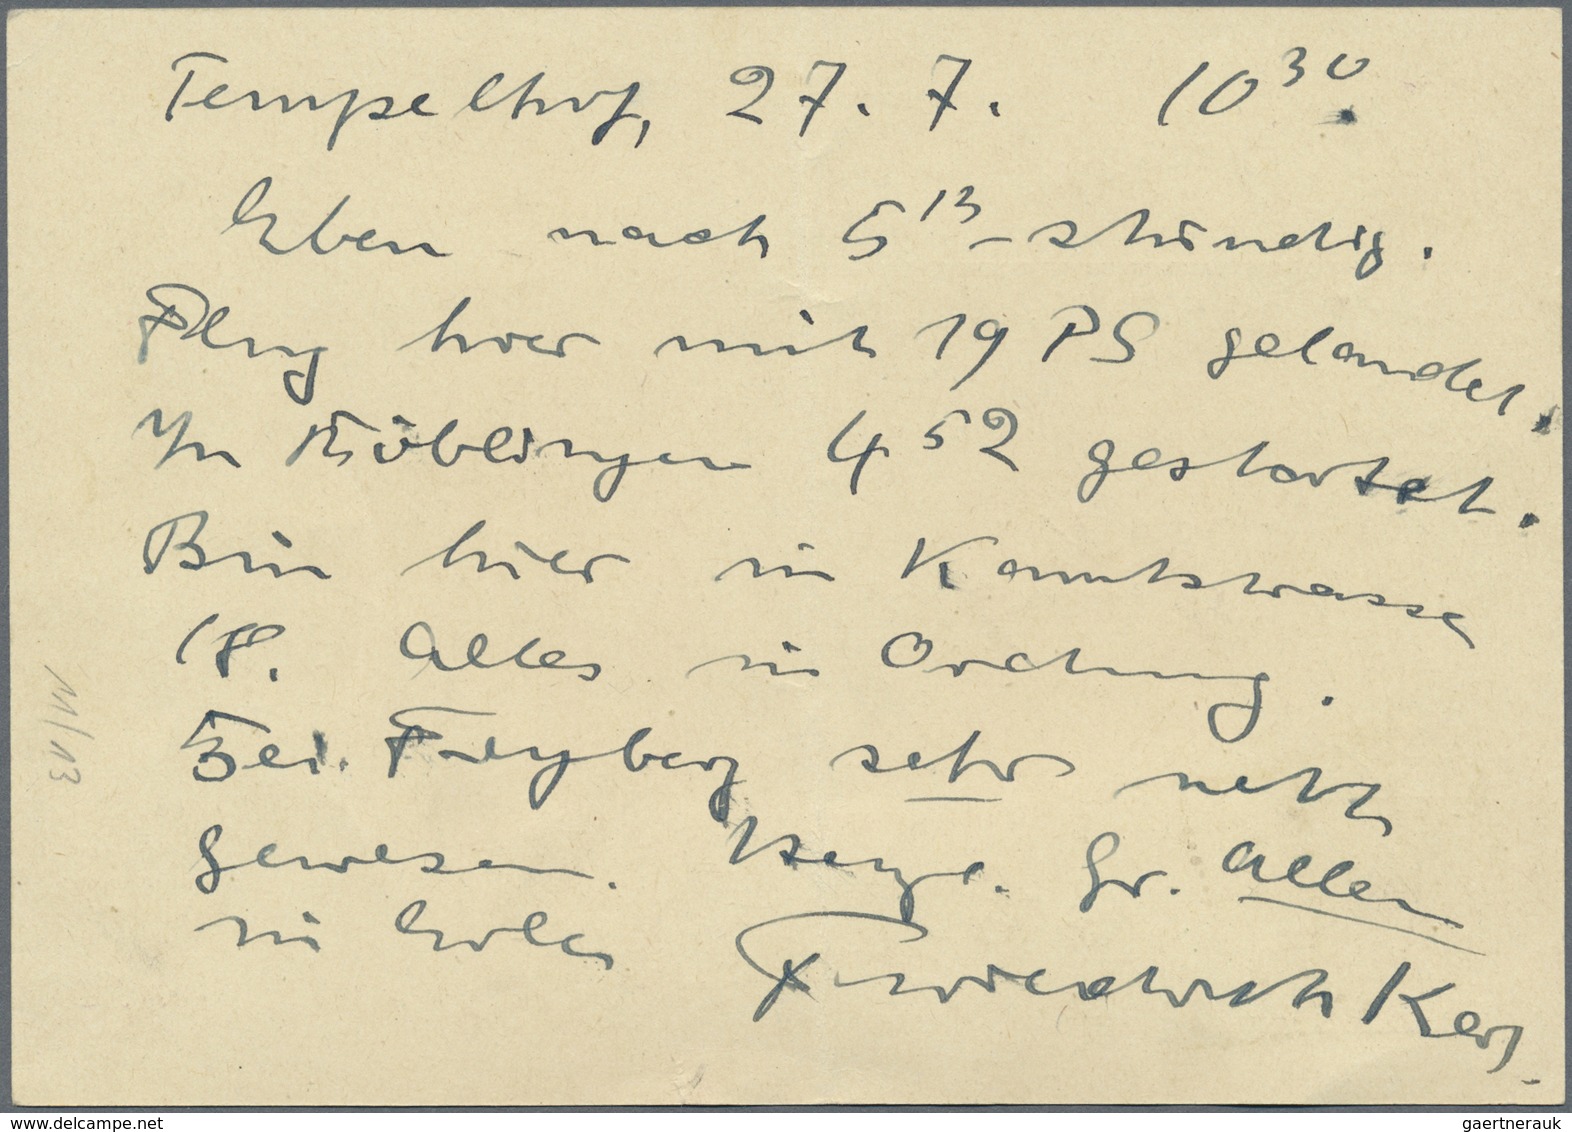 Tempelhof, 27. 7. 10³⁰
Eben nach 5¹³-stündig.
Flug hier mit 19 PS gelandet.
In Böblingen 4⁵² gestartet.
Bin hier in Kantstrasse
18. Alles in Ordnung.
Bei Freyberg sehr nett
gewesen. Herzl. Gr. Allen
in
Friedrich Karg.
11/13
delcampe.net
gaertnerauk